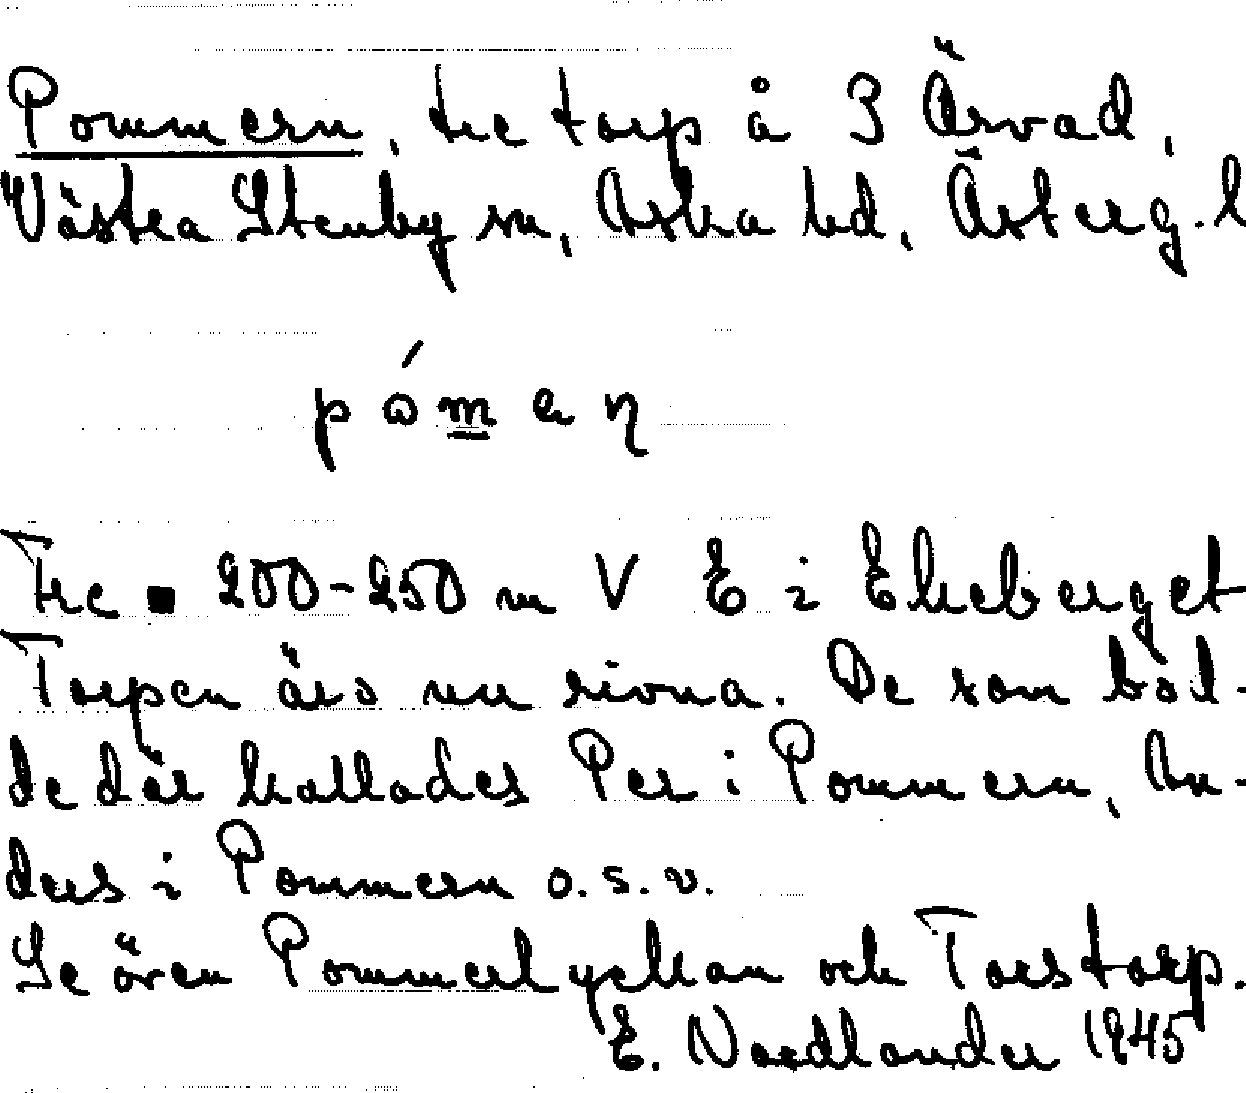 Pommern, tre torp å 3 Ärvad,
Västra Stenby sn, Aska hd, Österg. l
pómen
Tre ■ 200-250 m V E i Ekeberget
Torpen äro nu rivna. De som bod-
de där kallades Per i Pommern, An-
ders i Pommern o.s.v.
Se även Pommerlyckan och Torstorp.
E. Nordlander 1945